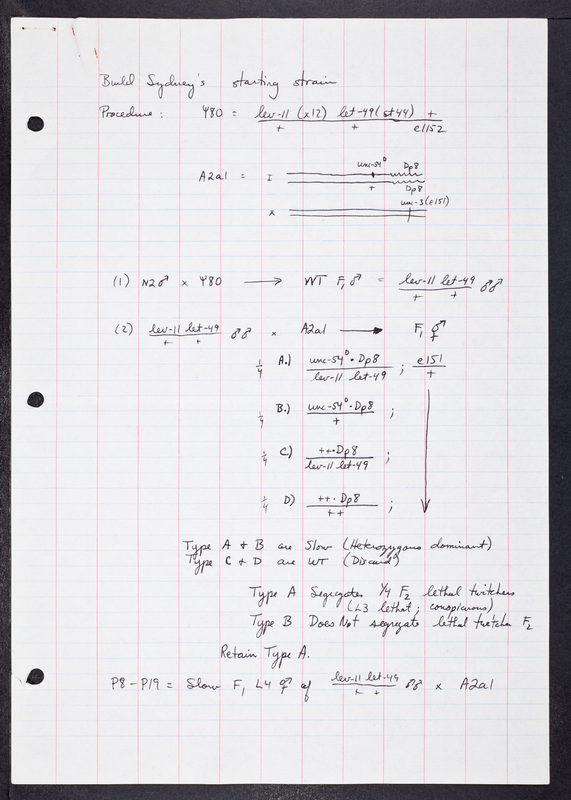 Build Sydney's starting strain
Procedure: Y80 = lev-11 (x12) let-49(st44) +
+ + e1152
unc-54ᴰ Dp8
A2a1 = I
+ Dp8
unc-3(e151)
X
(1) N2♂ x Y80 ⟶ WT F₁♂ = lev-11 let-49 ♂♂
+ +
(2) lev-11 let-49 ♂♂ x A2a1 ⟶ F₁ ⚥
+ +
1/4 A.) unc-54ᴰ · Dp8 ; e151
lev-11 let-49 +
1/4 B.) unc-54ᴰ · Dp8 ;
+
1/4 C.) ++·Dp8 ;
lev-11 let-49
1/4 D) ++· Dp8 ;
++
Type A + B are Slow (Heterozygous dominant)
Type C + D are WT (Discard)
Type A Segregates 1/4 F₂ lethal twitchers
(L3 lethal; conspicuous)
Type B Does Not segregate lethal twitcher F₂
Retain Type A.
P8 - P19 = Slow F₁ L4 ⚥ of lev-11 let-49 ♂♂ x A2a1
+ +